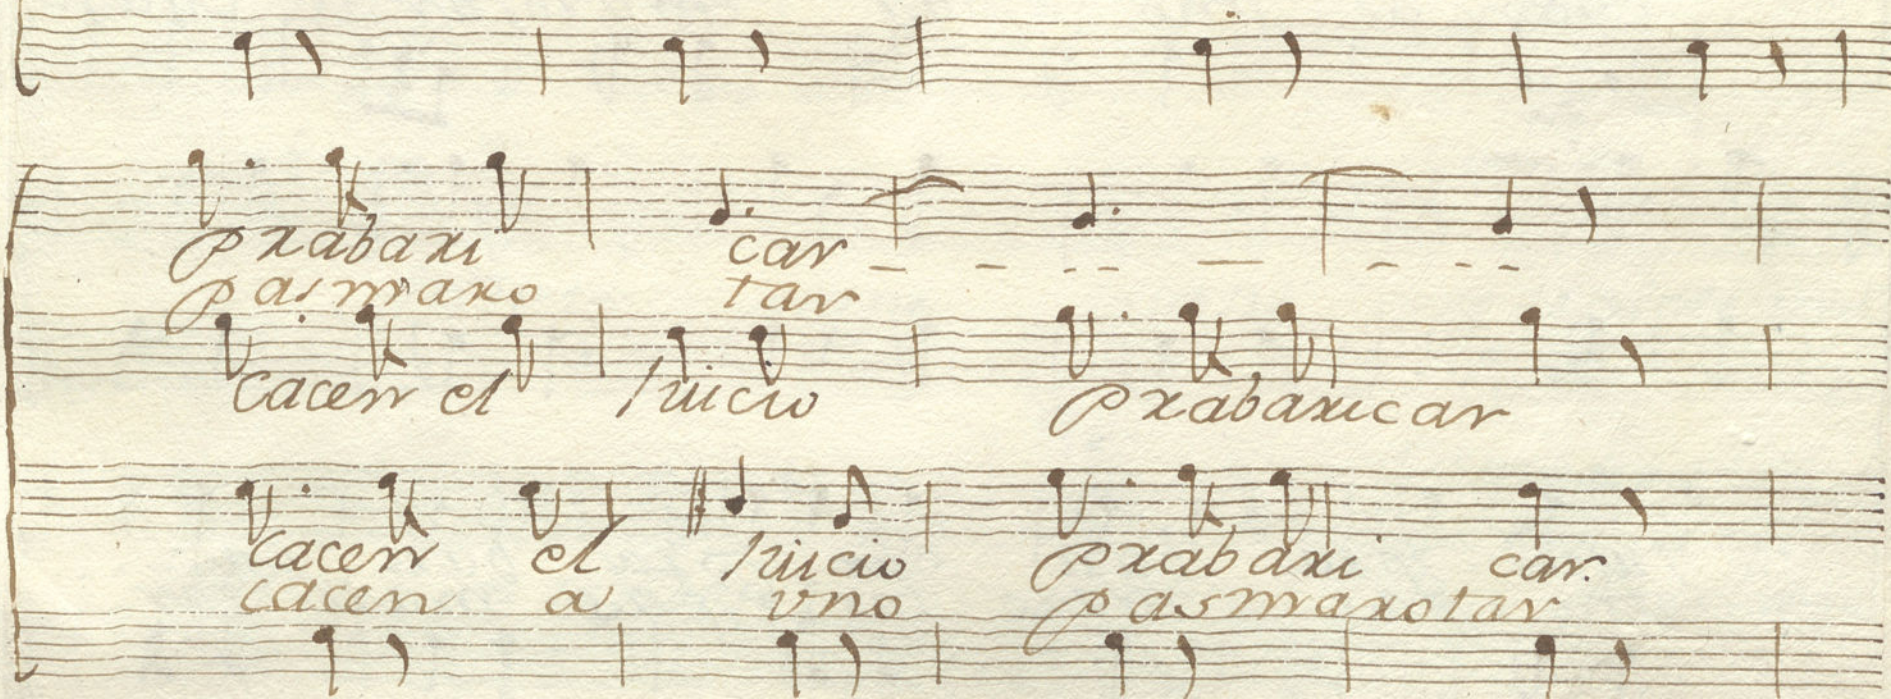 prabari car
pasmaro tar
cacen el Juicio prabaricar
cacen el Juicio prabari car.
cacen a vno pasmarotar